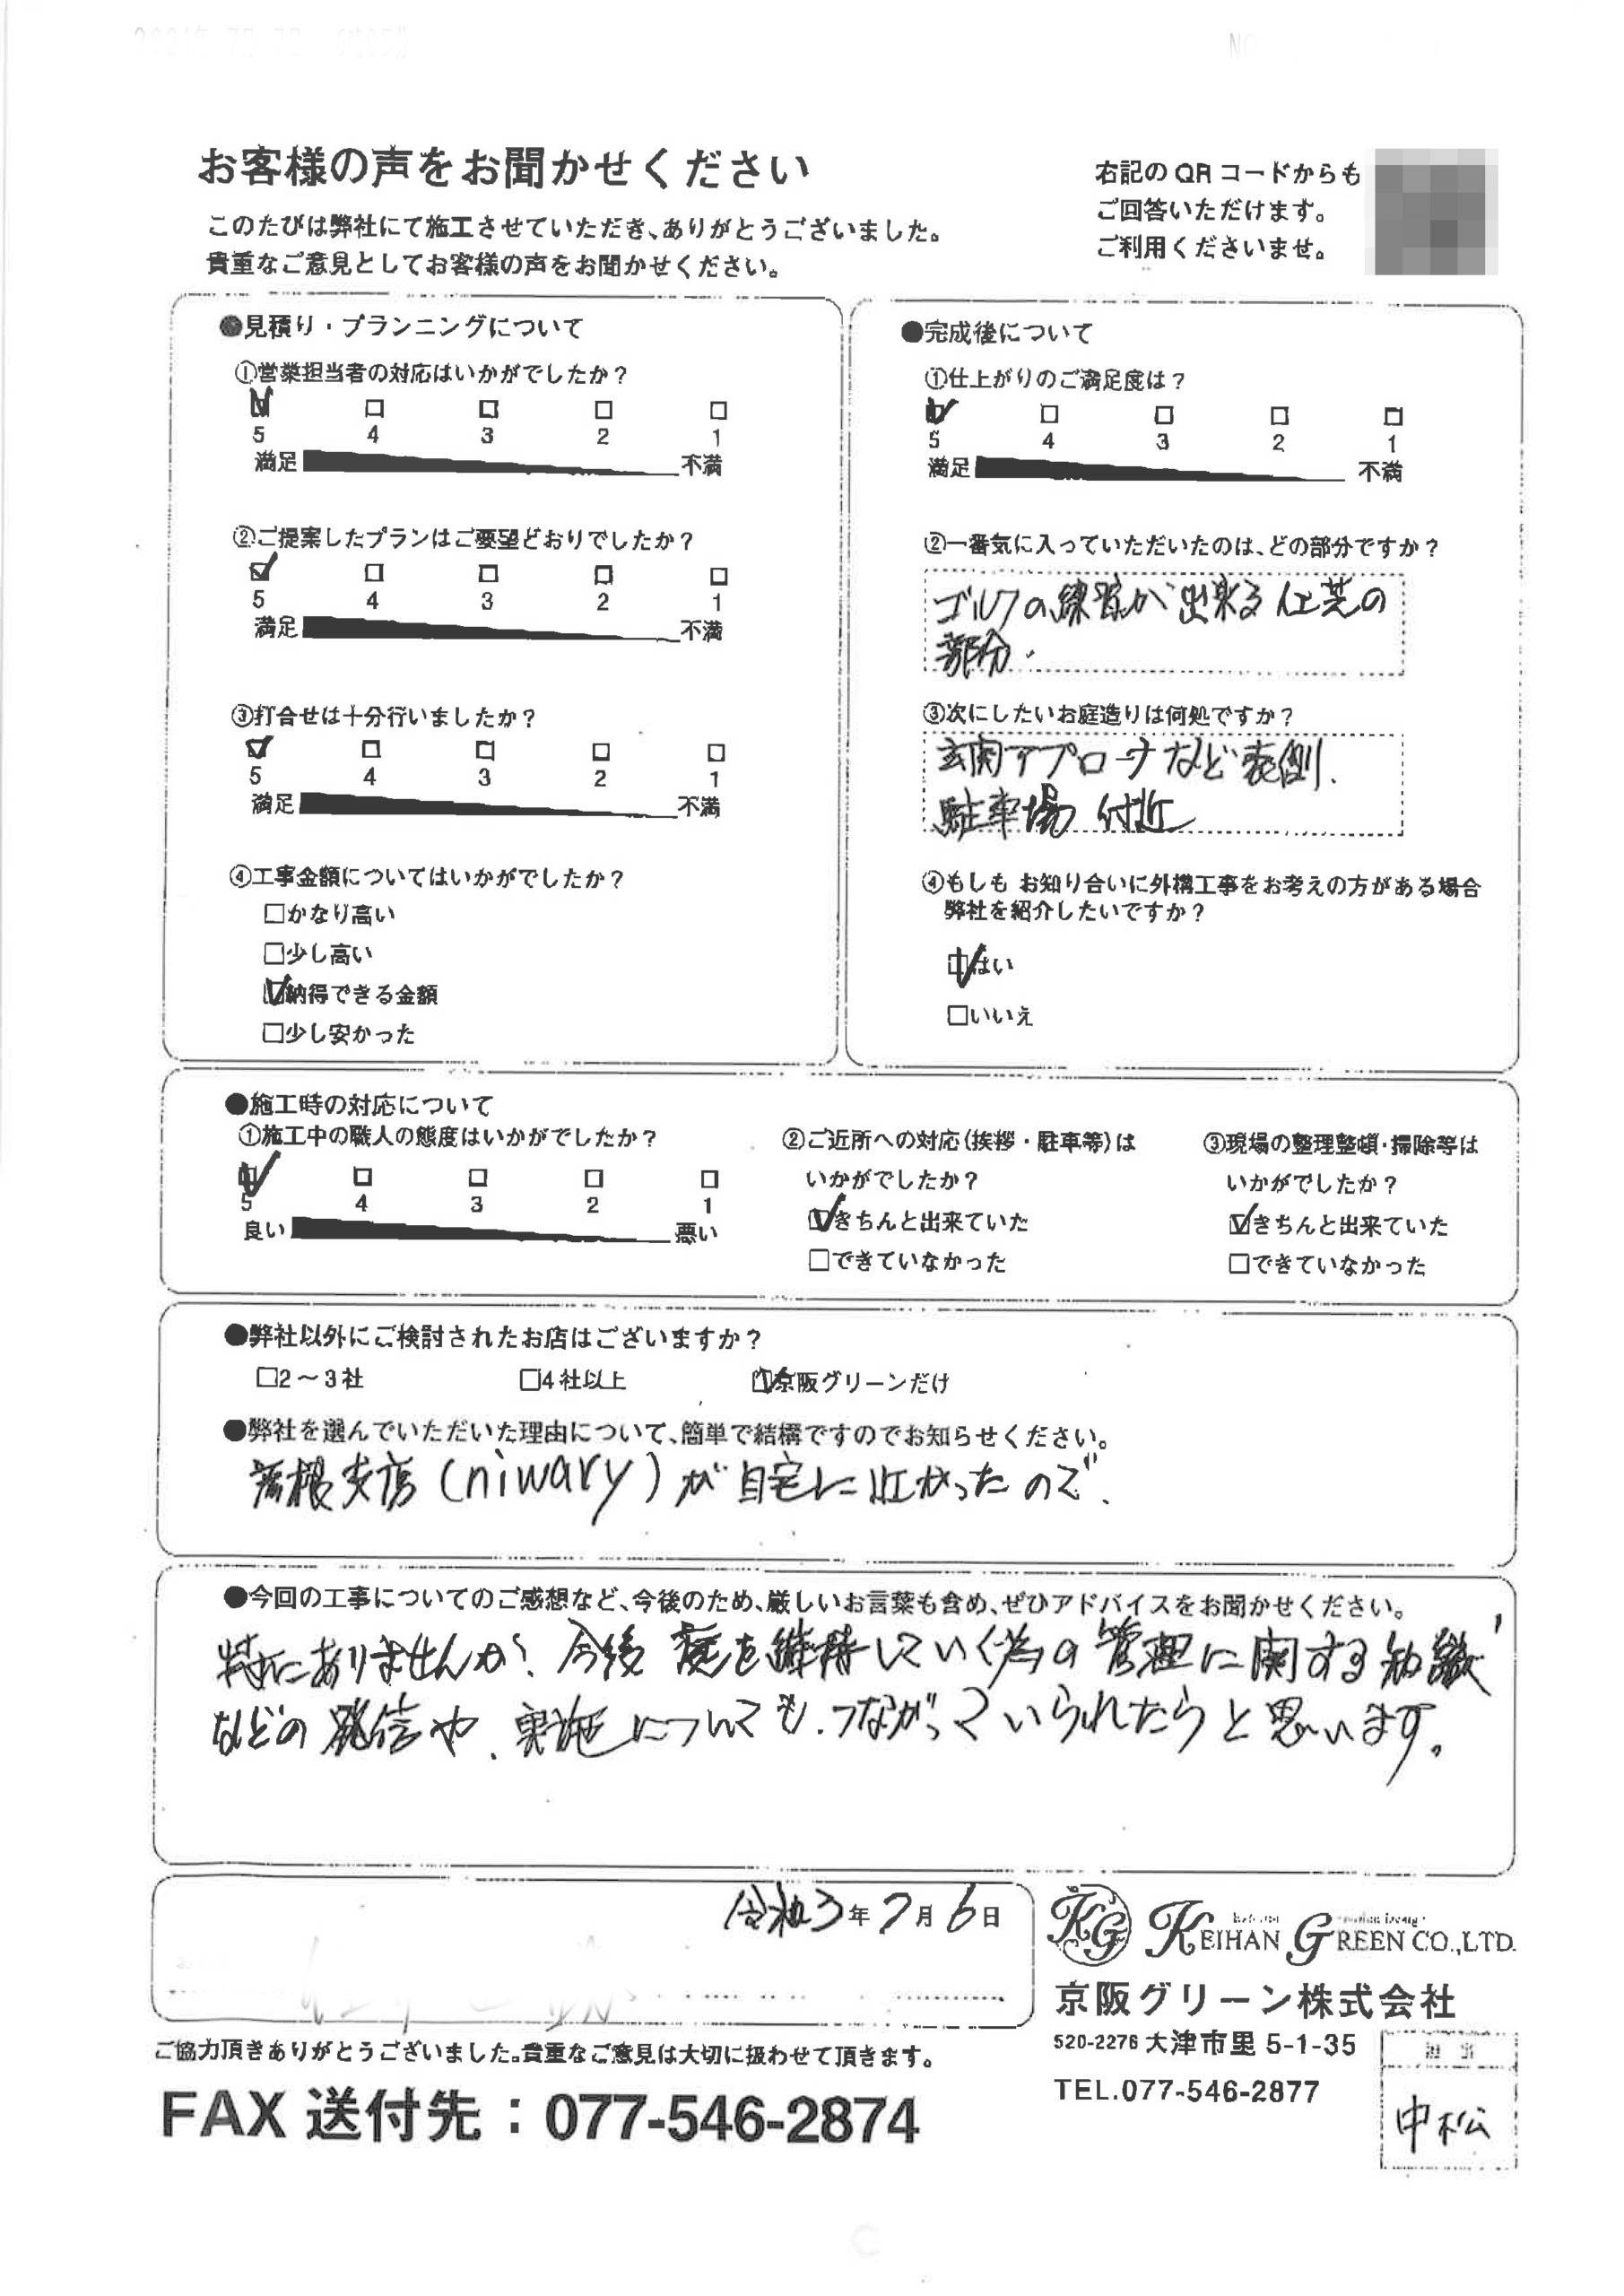 お客様の声をお聞かせください
このたびは弊社にて施工させていただき、ありがとうございました。
貴重なご意見としてお客様の声をお聞かせください。
右記のQRコードからも
ご回答いただけます。
ご利用くださいませ。
●見積り・プランニングについて
①営業担当者の対応はいかがでしたか?
5 4 3 2 1
満足 不満
②ご提案したプランはご要望どおりでしたか?
5 4 3 2 1
満足 不満
③打合せは十分行いましたか?
5 4 3 2 1
満足 不満
④工事金額についてはいかがでしたか?
□かなり高い
□少し高い
☑納得できる金額
□少し安かった
●完成後について
①仕上がりのご満足度は?
5 4 3 2 1
満足 不満
②一番気に入っていただいたのは、どの部分ですか?
ゴルフの練習が出来る人工芝の
部分.
③次にしたいお庭造りは何処ですか?
玄関アプローチなど表側.
駐車場付近
④もしも お知り合いに外構工事をお考えの方がある場合
弊社を紹介したいですか?
☑はい
□いいえ
●施工時の対応について
①施工中の職人の態度はいかがでしたか?
5 4 3 2 1
良い 悪い
②ご近所への対応(挨拶・駐車等)は
いかがでしたか?
☑きちんと出来ていた
□できていなかった
③現場の整理整頓・掃除等は
いかがでしたか?
☑きちんと出来ていた
□できていなかった
●弊社以外にご検討されたお店はございますか?
□2〜3社 □4社以上 ☑京阪グリーンだけ
●弊社を選んでいただいた理由について、簡単で結構ですのでお知らせください。
彦根支店(niwary)が自宅に近かったので.
●今回の工事についてのご感想など、今後のため、厳しいお言葉も含め、ぜひアドバイスをお聞かせください。
特にありませんが、今後庭を維持していく為の管理に関する知識
などの発信や、実施についても、つながっていられたらと思います。
令和3年7月6日
KG KEIHAN GREEN CO.,LTD.
京阪グリーン株式会社
520-2276 大津市里 5-1-35
TEL.077-546-2877
担当
中松
ご協力頂きありがとうございました。貴重なご意見は大切に扱わせて頂きます。
FAX 送付先:077-546-2874